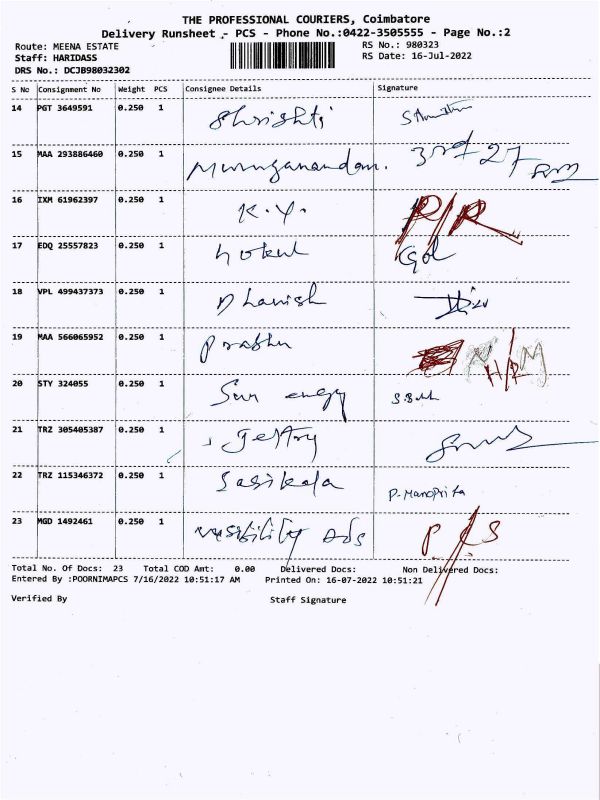 THE PROFESSIONAL COURIERS, Coimbatore
Delivery Runsheet - PCS - Phone No.:0422-3505555 - Page No.:2
Route: MEENA ESTATE RS No.: 980323
Staff: HARIDASS RS Date: 16-Jul-2022
DRS No.: DCJB98032302
S No Consignment No Weight PCS Consignee Details Signature
14 PGT 3649591 0.250 1 Shrishti
15 MAA 293886460 0.250 1 Muruganandam. 3rd 27
16 IXM 61962397 0.250 1 K.Y. P/R
17 EDQ 25557823 0.250 1 Gokul Gol
18 VPL 499437373 0.250 1 Dhanish
19 MAA 566065952 0.250 1 Prabhu
20 STY 324055 0.250 1 Sun engy
21 TRZ 305405387 0.250 1 Jeffry
22 TRZ 115346372 0.250 1 Sasikala P-Manoprita
23 MGD 1492461 0.250 1 Visibility Ads
Total No. Of Docs: 23 Total COD Amt: 0.00 Delivered Docs: Non Delivered Docs:
Entered By :POORNIMAPCS 7/16/2022 10:51:17 AM Printed On: 16-07-2022 10:51:21
Verified By Staff Signature